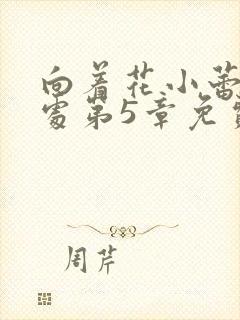 向着花小蕾
处第5章免费
周芹